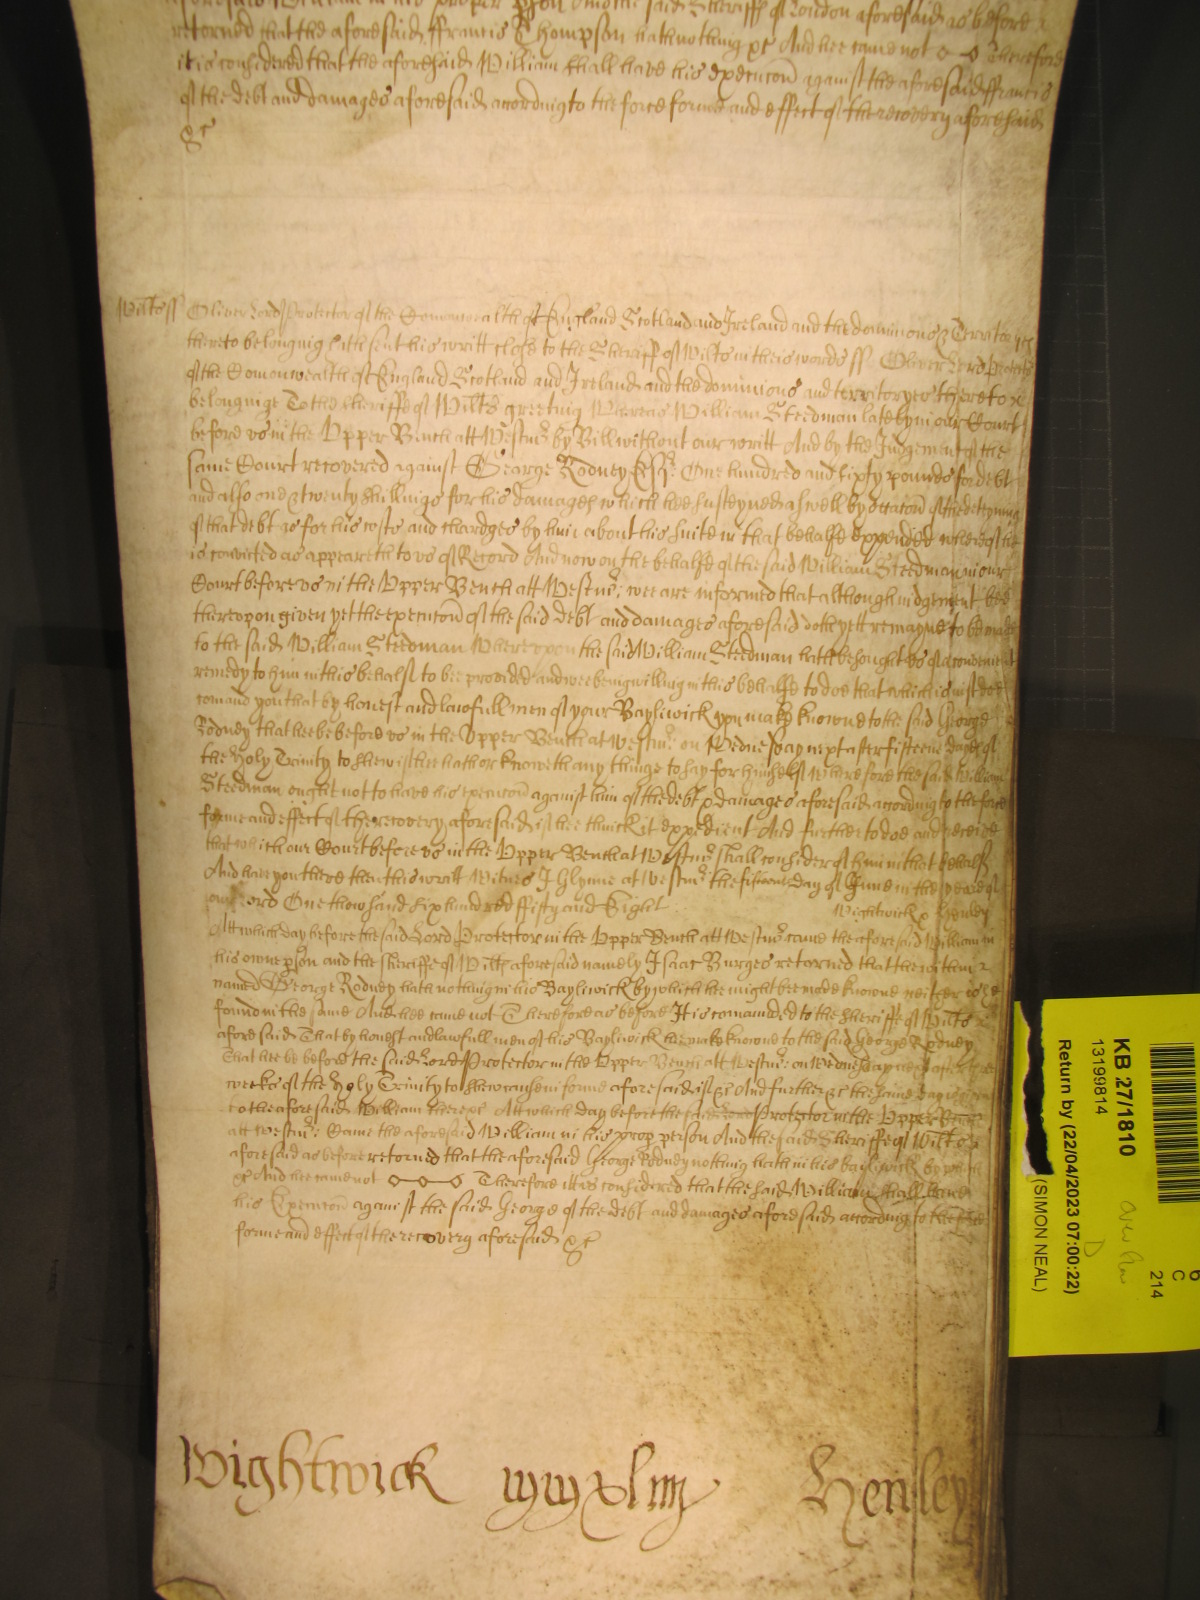 aforesaid William in his proper pson And the said Sheriffe of London aforesaid as before
retorned that the aforesaid ffrancis Thompson hath nothing &c And hee came not Therefore
it is considered that the aforesaid William shall have his execucon against the aforesaid ffrancis
of the debt and damages aforesaid according to the force forme and effect of the recovery aforesaid
&c
Wiltess Oliver Lord Protector of the Comonwealth of England Scotland and Ireland and the dominions & Territoryes
thereto belonging hath sent his writt close to the Sheriff of Wilts in theis words ss Oliver Lord Protector
of the Comonwealth of England Scotland and Ireland and the dominions and territoryes thereto
belonginge To the sheriffe of Wilts greeting Whereas William Steedman lately in our Court
before us in the Upper Bench att Westmr by Bill without our writt And by the Judgement of the
same Court recovered against George Rodney Esqr One hundred and sixty pounds for debt
and also one & twenty shillings for his damages which hee susteyned aswell by occacon of the deteyning
of that debt as for his costs and chardges by him about his suite in that behalfe expended whereof hee
is convicted as appeareth to us of Record And now on the behalfe of the said William Steedman in our
Court before us in the Upper Bench att Westmr: wee are informed that although judgement bee
thereupon given yet the execucon of the said debt and damages aforesaid doth yett remayne to be made
to the said William Steedman Whereupon the said William Steedman hath besought us of a convenient
remedy to him in this behalf to bee provided and wee being willing in this behalfe to doe that which is just doe
comand you that by honest and lawfull men of your Bayliwick you make knowne to the said George
Rodney that hee be before us in the Upper Bench at Westmr: on Wednesday next after fifteene dayes of
the Holy Trinity to shew if hee hath or knoweth any thinge to say for himself wherefore the said William
Steedman ought not to have his execucon against him of the debt & damages aforesaid according to the force
forme and effect of the recovery aforesaid if hee thinck it expedient And further to doe and receive
that which our Court before us in the Upper Bench at Westmr shall consider of him in that behalf
And have you there then this writt Witnes J Glynne at Westmr the fifteenth day of June in the yeare of
our Lord One thowsand six hundred ffifty and Eight Wightwick & Henley
Att which day before the said Lord Protector in the Upper Bench att Westmr came the aforesaid William in
his owne pson and the Sheriffe of Wilts aforesaid namely Isaac Burges retorned that the within
named George Rodney hath nothing in his Bayliwick by which hee might bee made knowne neither is hee
found in the same And hee came not Therefore as before It is comanded to the sheriffe of Wilts
aforesaid That by honest and lawfull men of his Bayliwick hee make knowne to the said George Rodney
That hee be before the said Lord Protector in the Upper Bench att Westmr: on Wednesday next after three
weekes of the Holy Trinity to shew in forme aforesaid if &c And further &c the same day is given
to the aforesaid William there &c Att which day before the said Protector in the Upper Bench
att Westmr: Came the aforesaid William in his prop person And the said Sheriffe of Wilts
aforesaid as before retorned that the aforesaid George Rodney nothing hath in his bayliwick by which
&c And hee came not Therefore itt is considered that the said William shall have
his Execucon against the said George of the debt and damages aforesaid according to the force
forme and effect of the recovery aforesaid &c
Wightwick Henley
KB 27/1810
13199814
Return by (22/04/2023 07:00:22)
(SIMON NEAL)
6
C
214
D